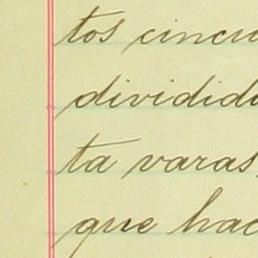 tos cincu
dividida
ta varas
que hac